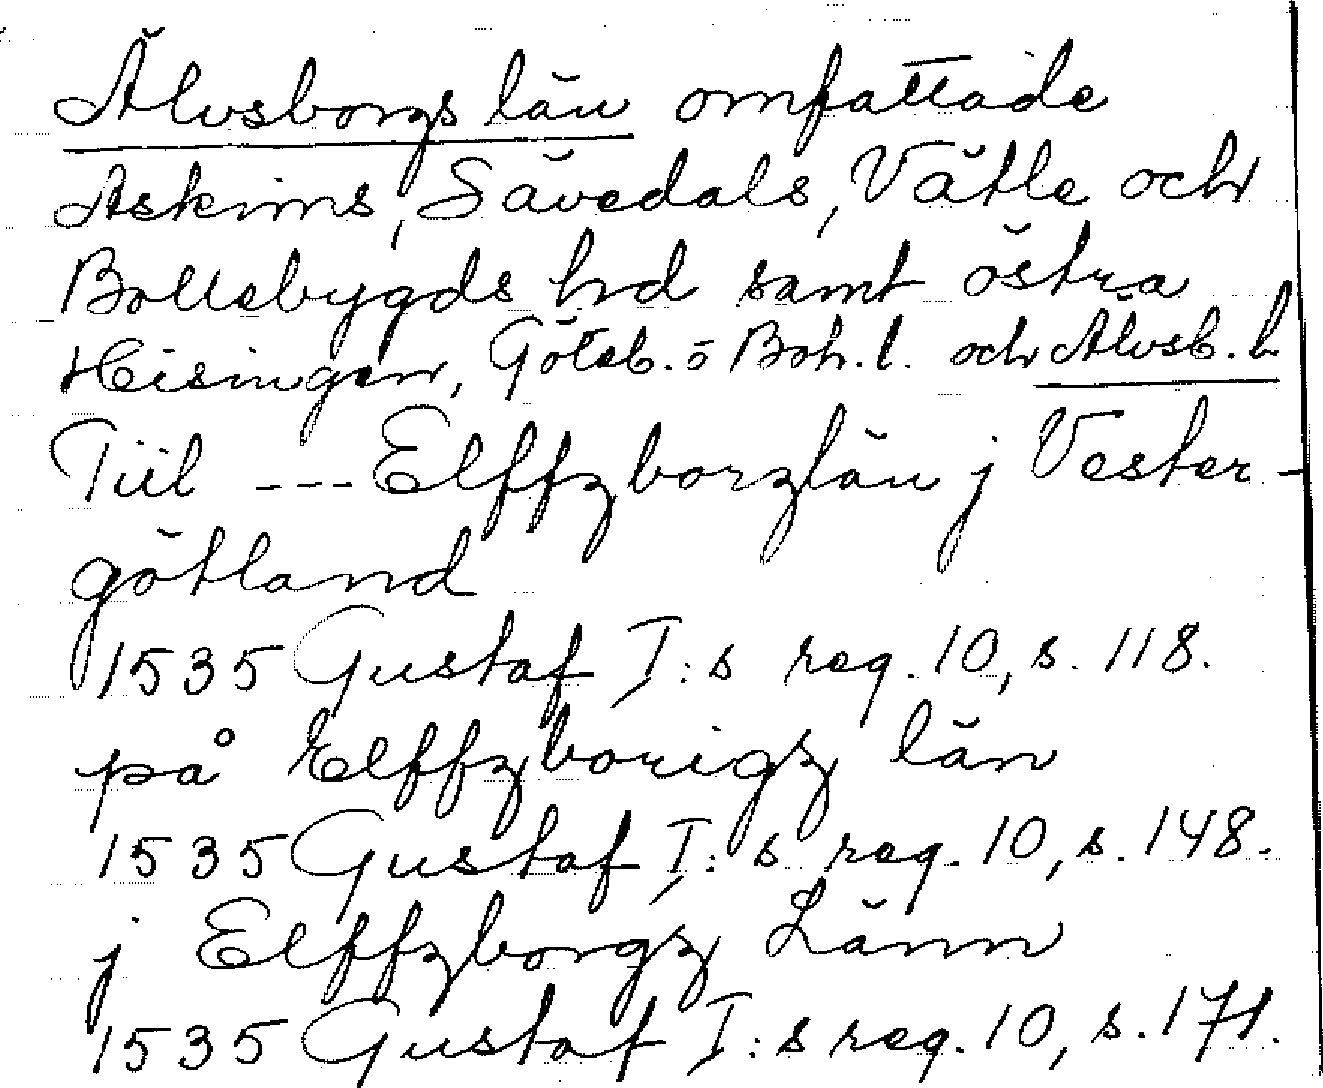 Älvsborgs län omfattade
Askims, Sävedals, Vätle och
Bollebygds hrd samt östra
Hisingen, Göteb. o Boh. l. och Älvsb. l.
Till --- Elffzborzlän j Vester-
götland
1535 Gustaf I:s reg. 10, s. 118.
på Elffzborigz län
1535 Gustaf I:s reg. 10, s. 148.
j Elffzborgz Länn
1535 Gustaf I:s reg. 10, s. 171.